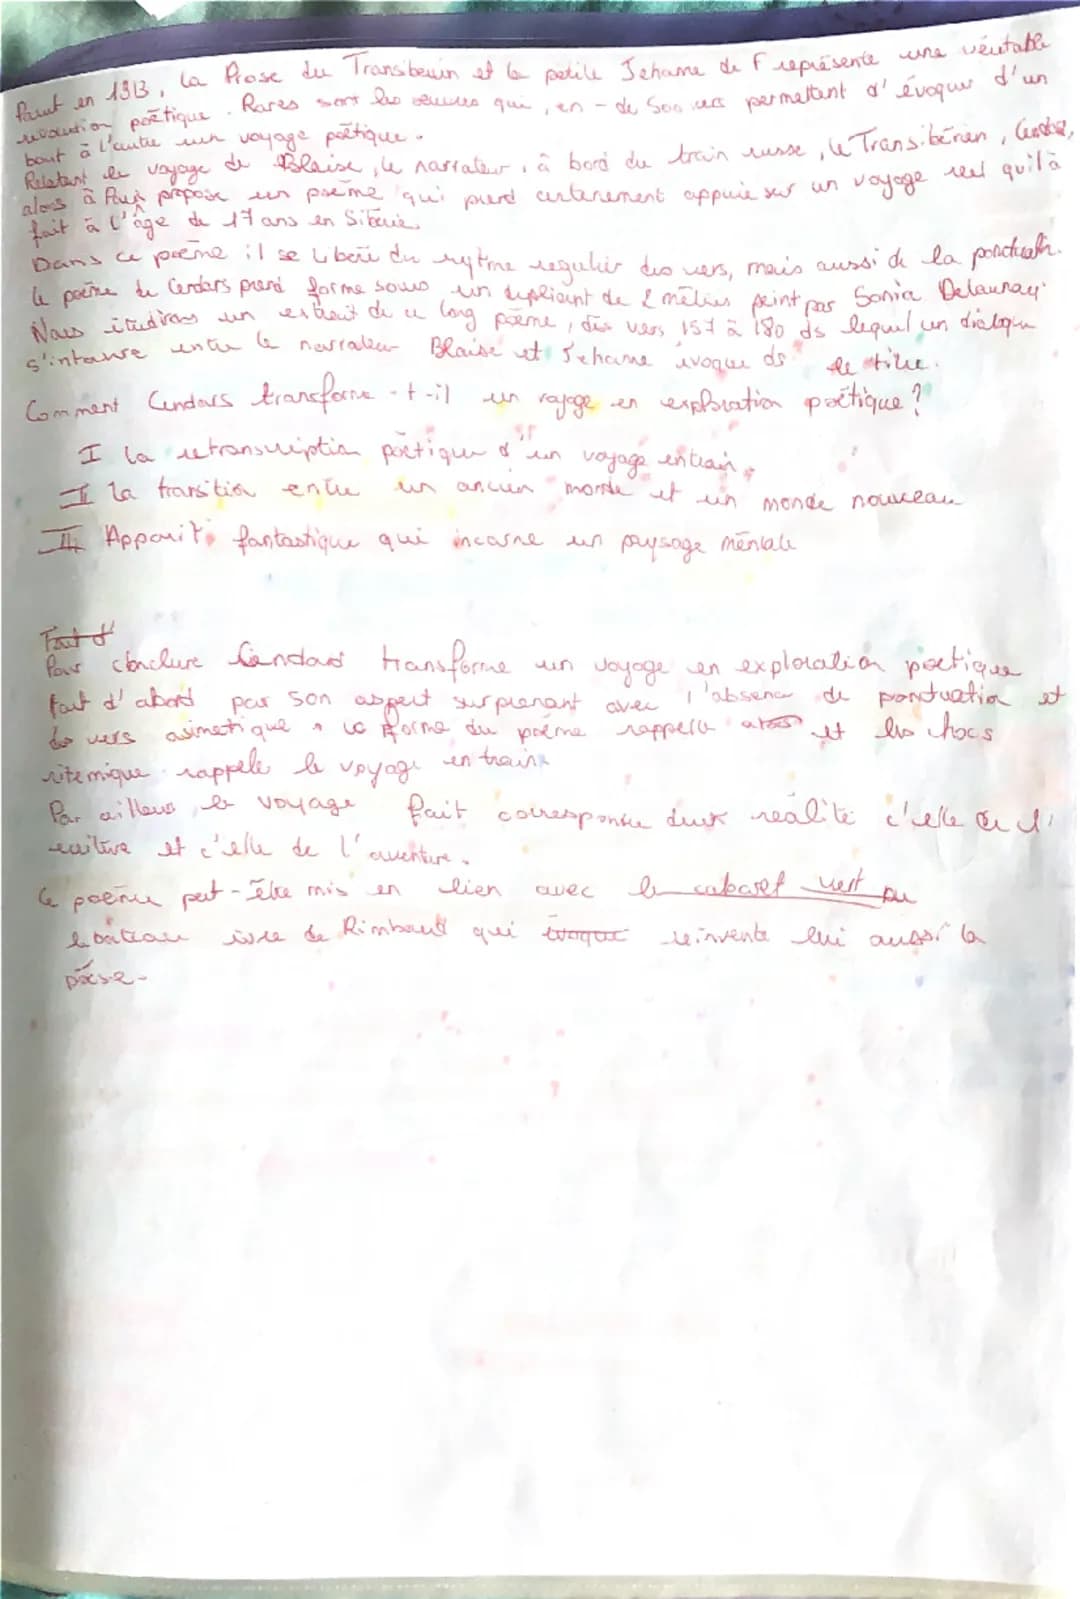 Parut en 1913, La Prose du Transiberin et la petite Jehanne de F représente une véritable
révolution poétique. Rares sont les œuvres qui, en - de 500 vers permettent d'évoquer d'un
bout à l'autre un voyage poétique.
Relatant le voyage de Blaise, le narrateur, à bord du train russe, le Transibérien, Cendrars,
alors à Paris propose un poème qui prend certenement appuie sur un voyage réel qu'il à
fait à l'âge de 17 ans en Sibérie.
Dans ce poème il se libère du rytme régulier des vers, mais aussi de la ponctuati.
Le poème de Cendars prend forme sous un dépliant de 2 mètres peint par Sonia Delaunay.
Nous étudirons un extrait de ce long poème, des vers 157 à 180 ds lequel un dialogue
s'intaure entre le narrateur Blaise et Jehanne évoquée ds le titre.
Comment Cendars transforme-t-il un voyage en exploration poétique?
I La retranscription poétique d'un voyage en train.
II La transition entre un ancien monde et un monde nouveau
III Apparit° fantastique qui incarne un paysage mentale
Tout d'
Pour conclure Cendars transforme un voyage en exploration poétique
tout d'abord par son aspect surprenant avec l'absence de ponctuation et
les vers asimetrique, la forme du poème rappelle et les chocs
ritemique rappele le voyage en train.
Par ailleurs, le voyage fait correspondre deux réalité c'elle de l'
écriture et c'elle de l'aventure.
Ce poème peut-être mis en lien avec le cabaret vert ou
le bateau ivre de Rimbaud qui évoque réinvente lui aussi la
poésie.